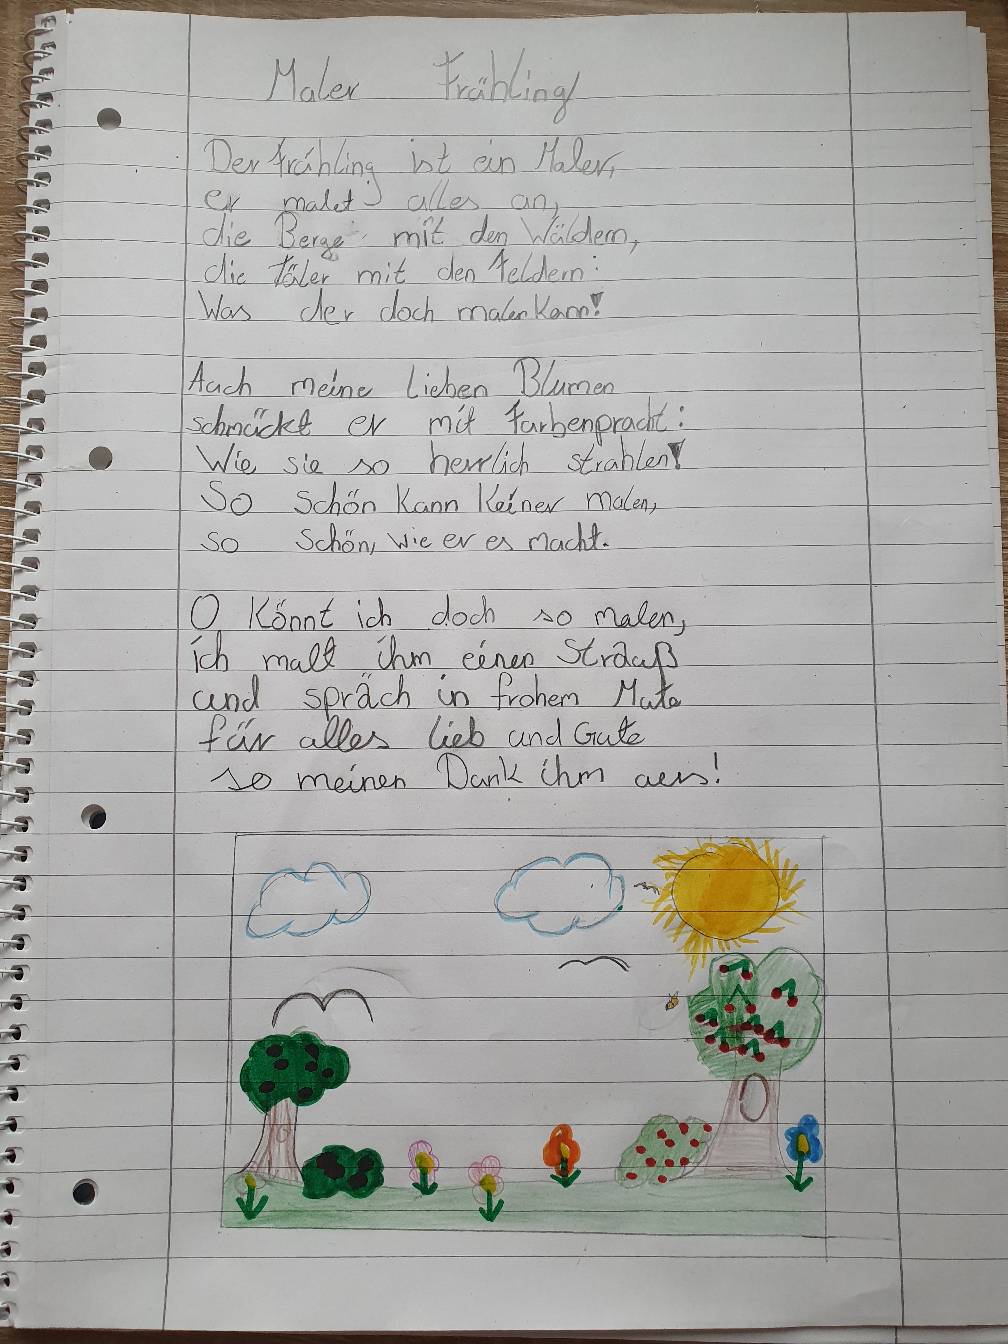 Maler Frühling
Der Frühling ist ein Maler,
er malet alles an,
die Berge mit den Wäldern,
die Täler mit den Feldern:
Was der doch malen kann!
Auch meine lieben Blumen
schmückt er mit Farbenpracht:
Wie sie so herrlich strahlen!
So schön kann keiner malen,
so schön, wie er es macht.
O könnt ich doch so malen,
ich malt ihm einen Strauß
und spräch in frohem Mute
für alles lieb und Gute
so meinen Dank ihm aus!